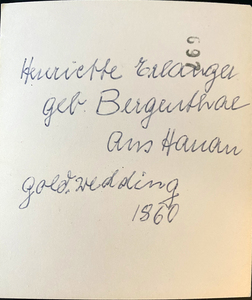 Henriette Erlanger
geb. Bergenthal
Aus Hanau
gold. wedding
1860